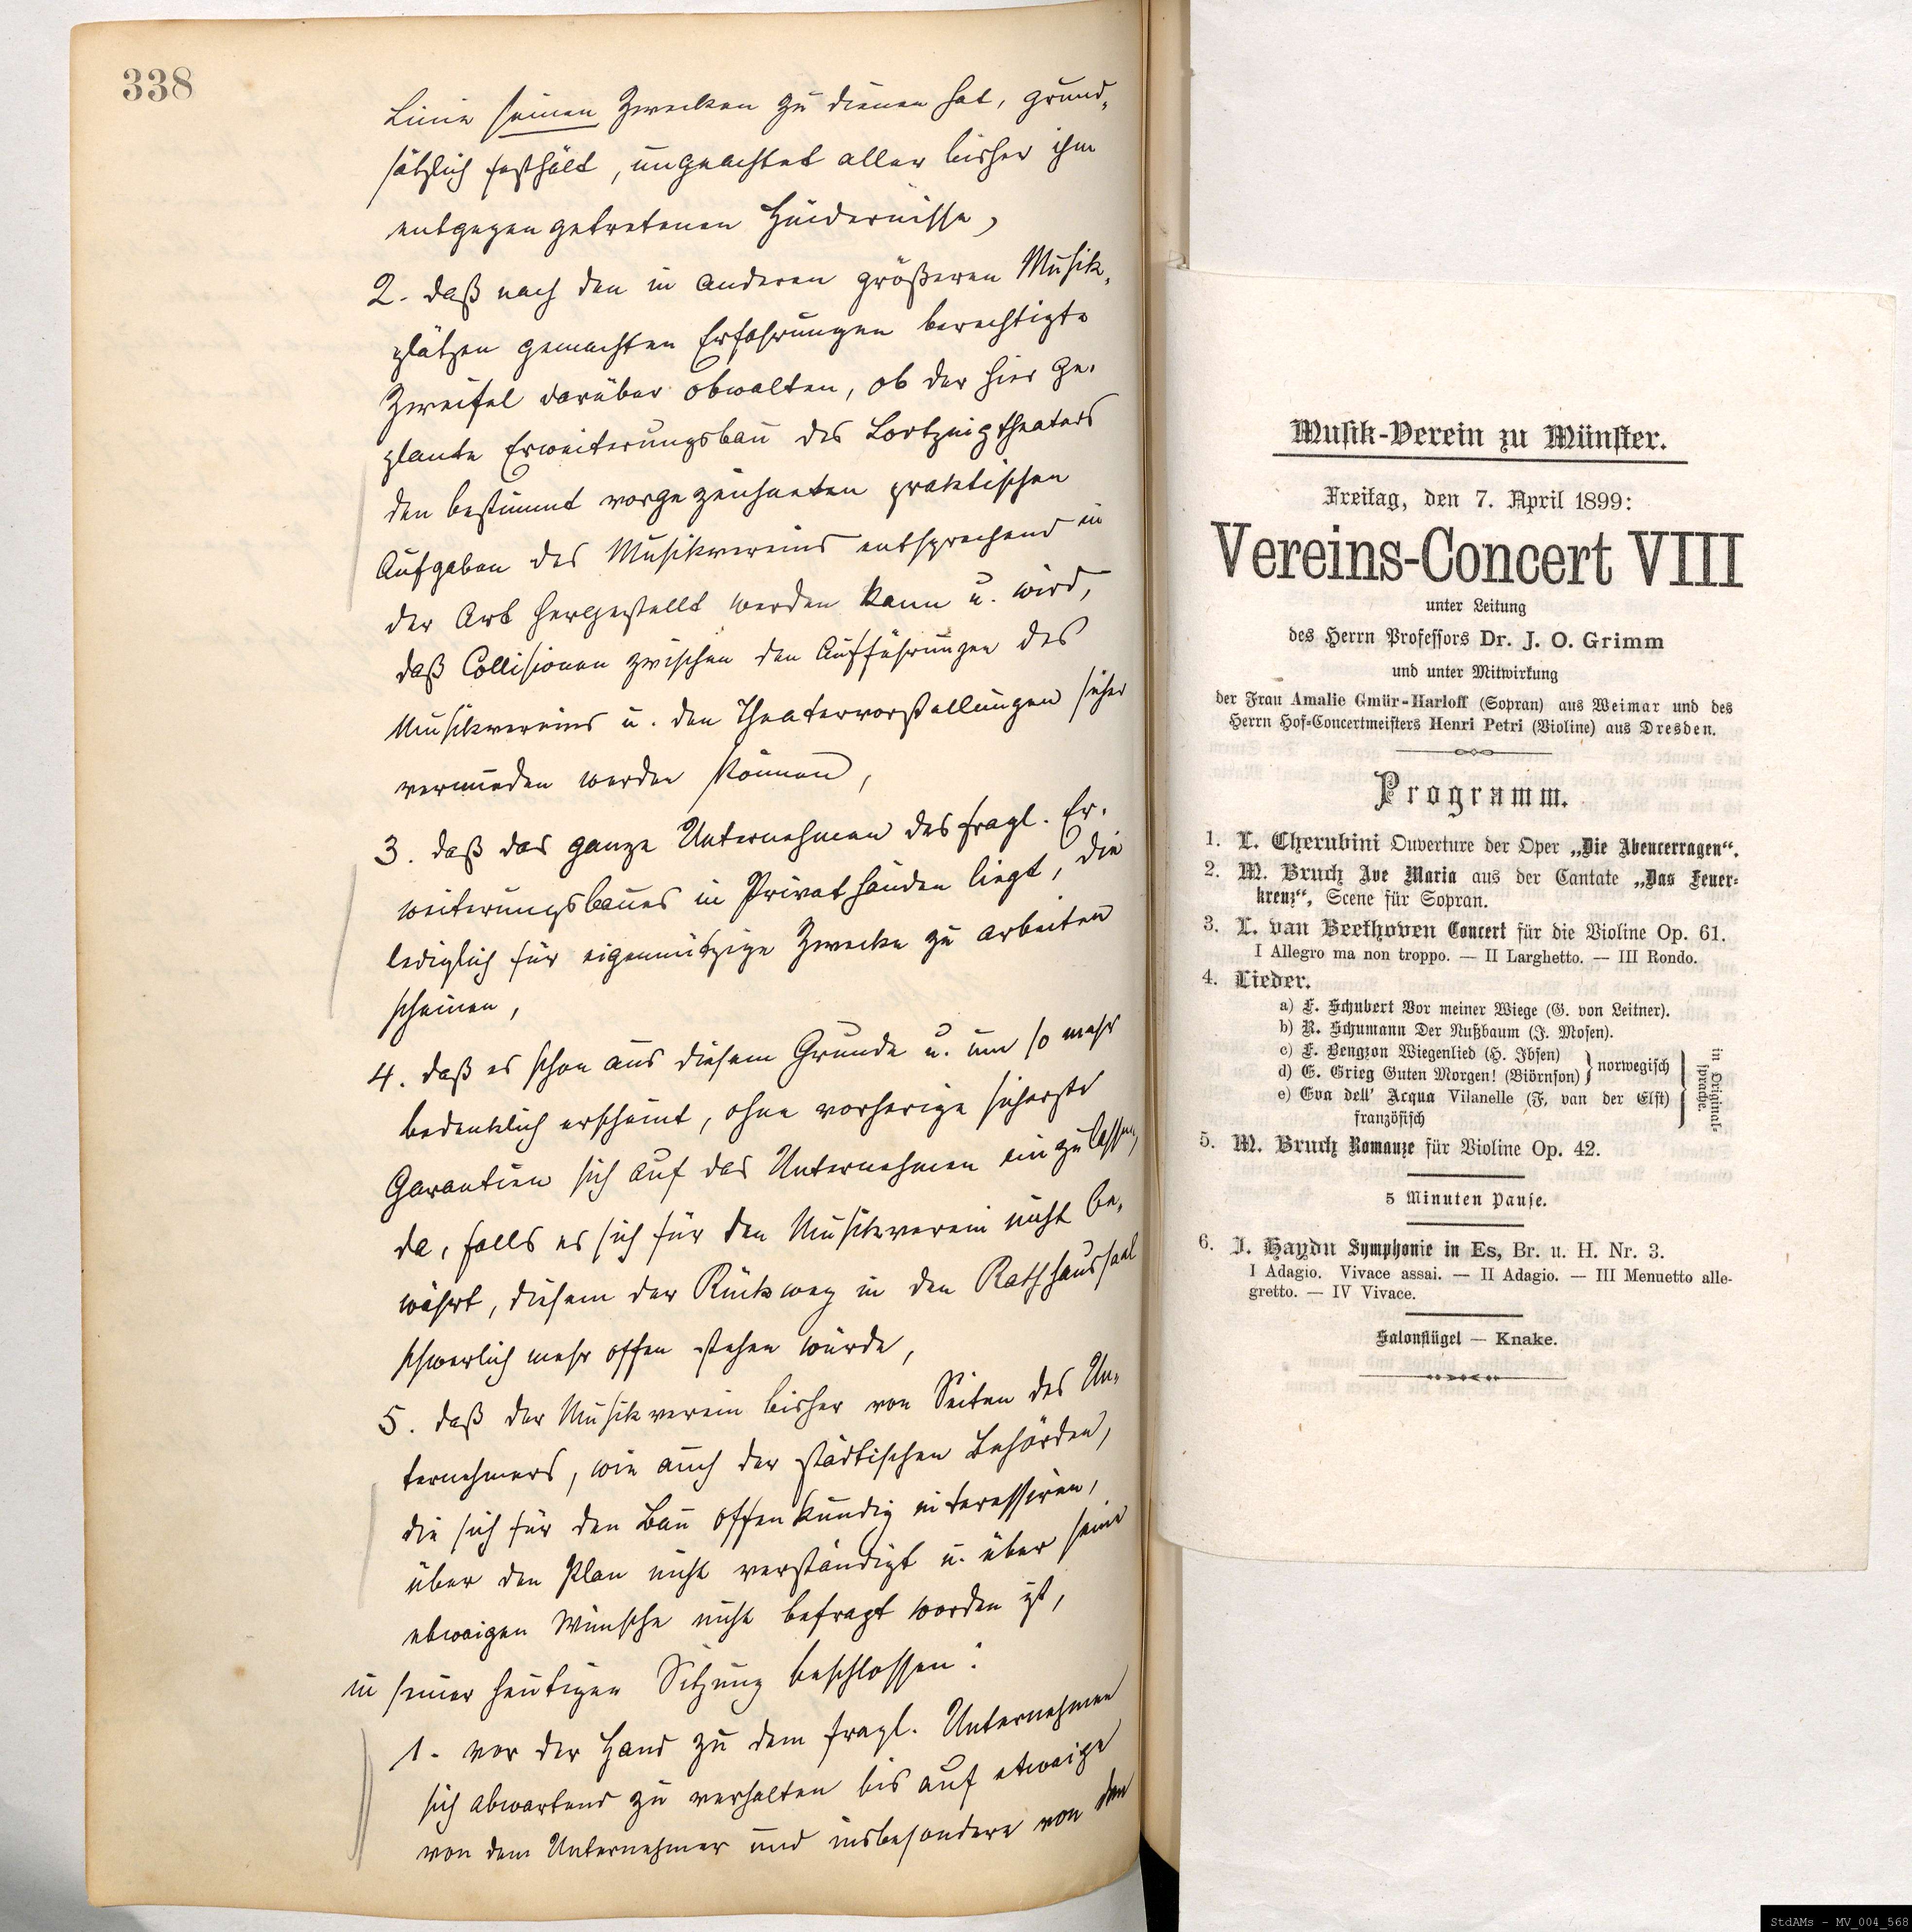 338
Linie seinen Zwecken zu dienen hat, grund-
sätzlich festhält, ungeachtet aller bisher ihm
entgegen getretenen Hindernisse,
2. daß nach den in anderen größeren Musik-
plätzen gemachten Erfahrungen berechtigte
Zweifel darüber obwalten, ob der hier ge-
plante Erweiterungsbau des Lortzingtheaters
den bestimmt vorgezeichneten praktischen
Aufgaben des Musikvereins entsprechend in
der Art hergestellt werden kann u. wird,
daß Collisionen zwischen den Aufführungen des
Musikvereins u. den Theatervorstellungen sicher
vermieden werden können,
3. daß das ganze Unternehmen des fragl. Er-
weiterungsbaues in Privathänden liegt, die
lediglich für eigennützige Zwecke zu arbeiten
scheinen,
4. daß es schon aus diesem Grunde u. um so mehr
bedenklich erscheint, ohne vorherige sicherste
Garantien sich auf das Unternehmen einzulassen,
da, falls es sich für den Musikverein nicht be-
währt, diesem der Rückweg in den Rathhaussaal
schwerlich mehr offen stehen würde,
5. daß der Musikverein bisher von Seiten des Un-
ternehmers, wie auch der städtischen Behörden,
die sich für den Bau offenkundig interessiren,
über den Plan nicht verständigt u. über seine
etwaigen Wünsche nicht befragt worden ist,
in seiner heutigen Sitzung beschlossen:
1. vor der Hand zu dem fragl. Unternehmen
sich abwartend zu verhalten bis auf etwaige
von dem Unternehmer und insbesondere von den
Musik-Verein zu Münster.
Freitag, den 7. April 1899:
Vereins-Concert VIII
unter Leitung
des Herrn Professors Dr. J. O. Grimm
und unter Mitwirkung
der Frau Amalie Gmür-Harloff (Sopran) aus Weimar und des
Herrn Hof-Concertmeisters Henri Petri (Violine) aus Dresden.
Programm.
1. L. Cherubini Ouverture der Oper „Die Abencerragen“.
2. M. Bruch Ave Maria aus der Cantate „Das Feuer-
kreuz“, Scene für Sopran.
3. L. van Beethoven Concert für die Violine Op. 61.
I Allegro ma non troppo. — II Larghetto. — III Rondo.
4. Lieder.
a) F. Schubert Vor meiner Wiege (G. von Leitner).
b) R. Schumann Der Nußbaum (J. Mosen).
c) F. Bengzon Wiegenlied (H. Ibsen)
d) E. Grieg Guten Morgen! (Biörnson) } norwegisch
e) Eva dell' Acqua Vilanelle (F. van der Elst)
französisch
in Original-
sprache.
5. M. Bruch Romanze für Violine Op. 42.
5 Minuten Pause.
6. J. Haydn Symphonie in Es, Br. u. H. Nr. 3.
I Adagio. Vivace assai. — II Adagio. — III Menuetto alle-
gretto. — IV Vivace.
Salonflügel — Knake.
StdAMs - MV_004_568